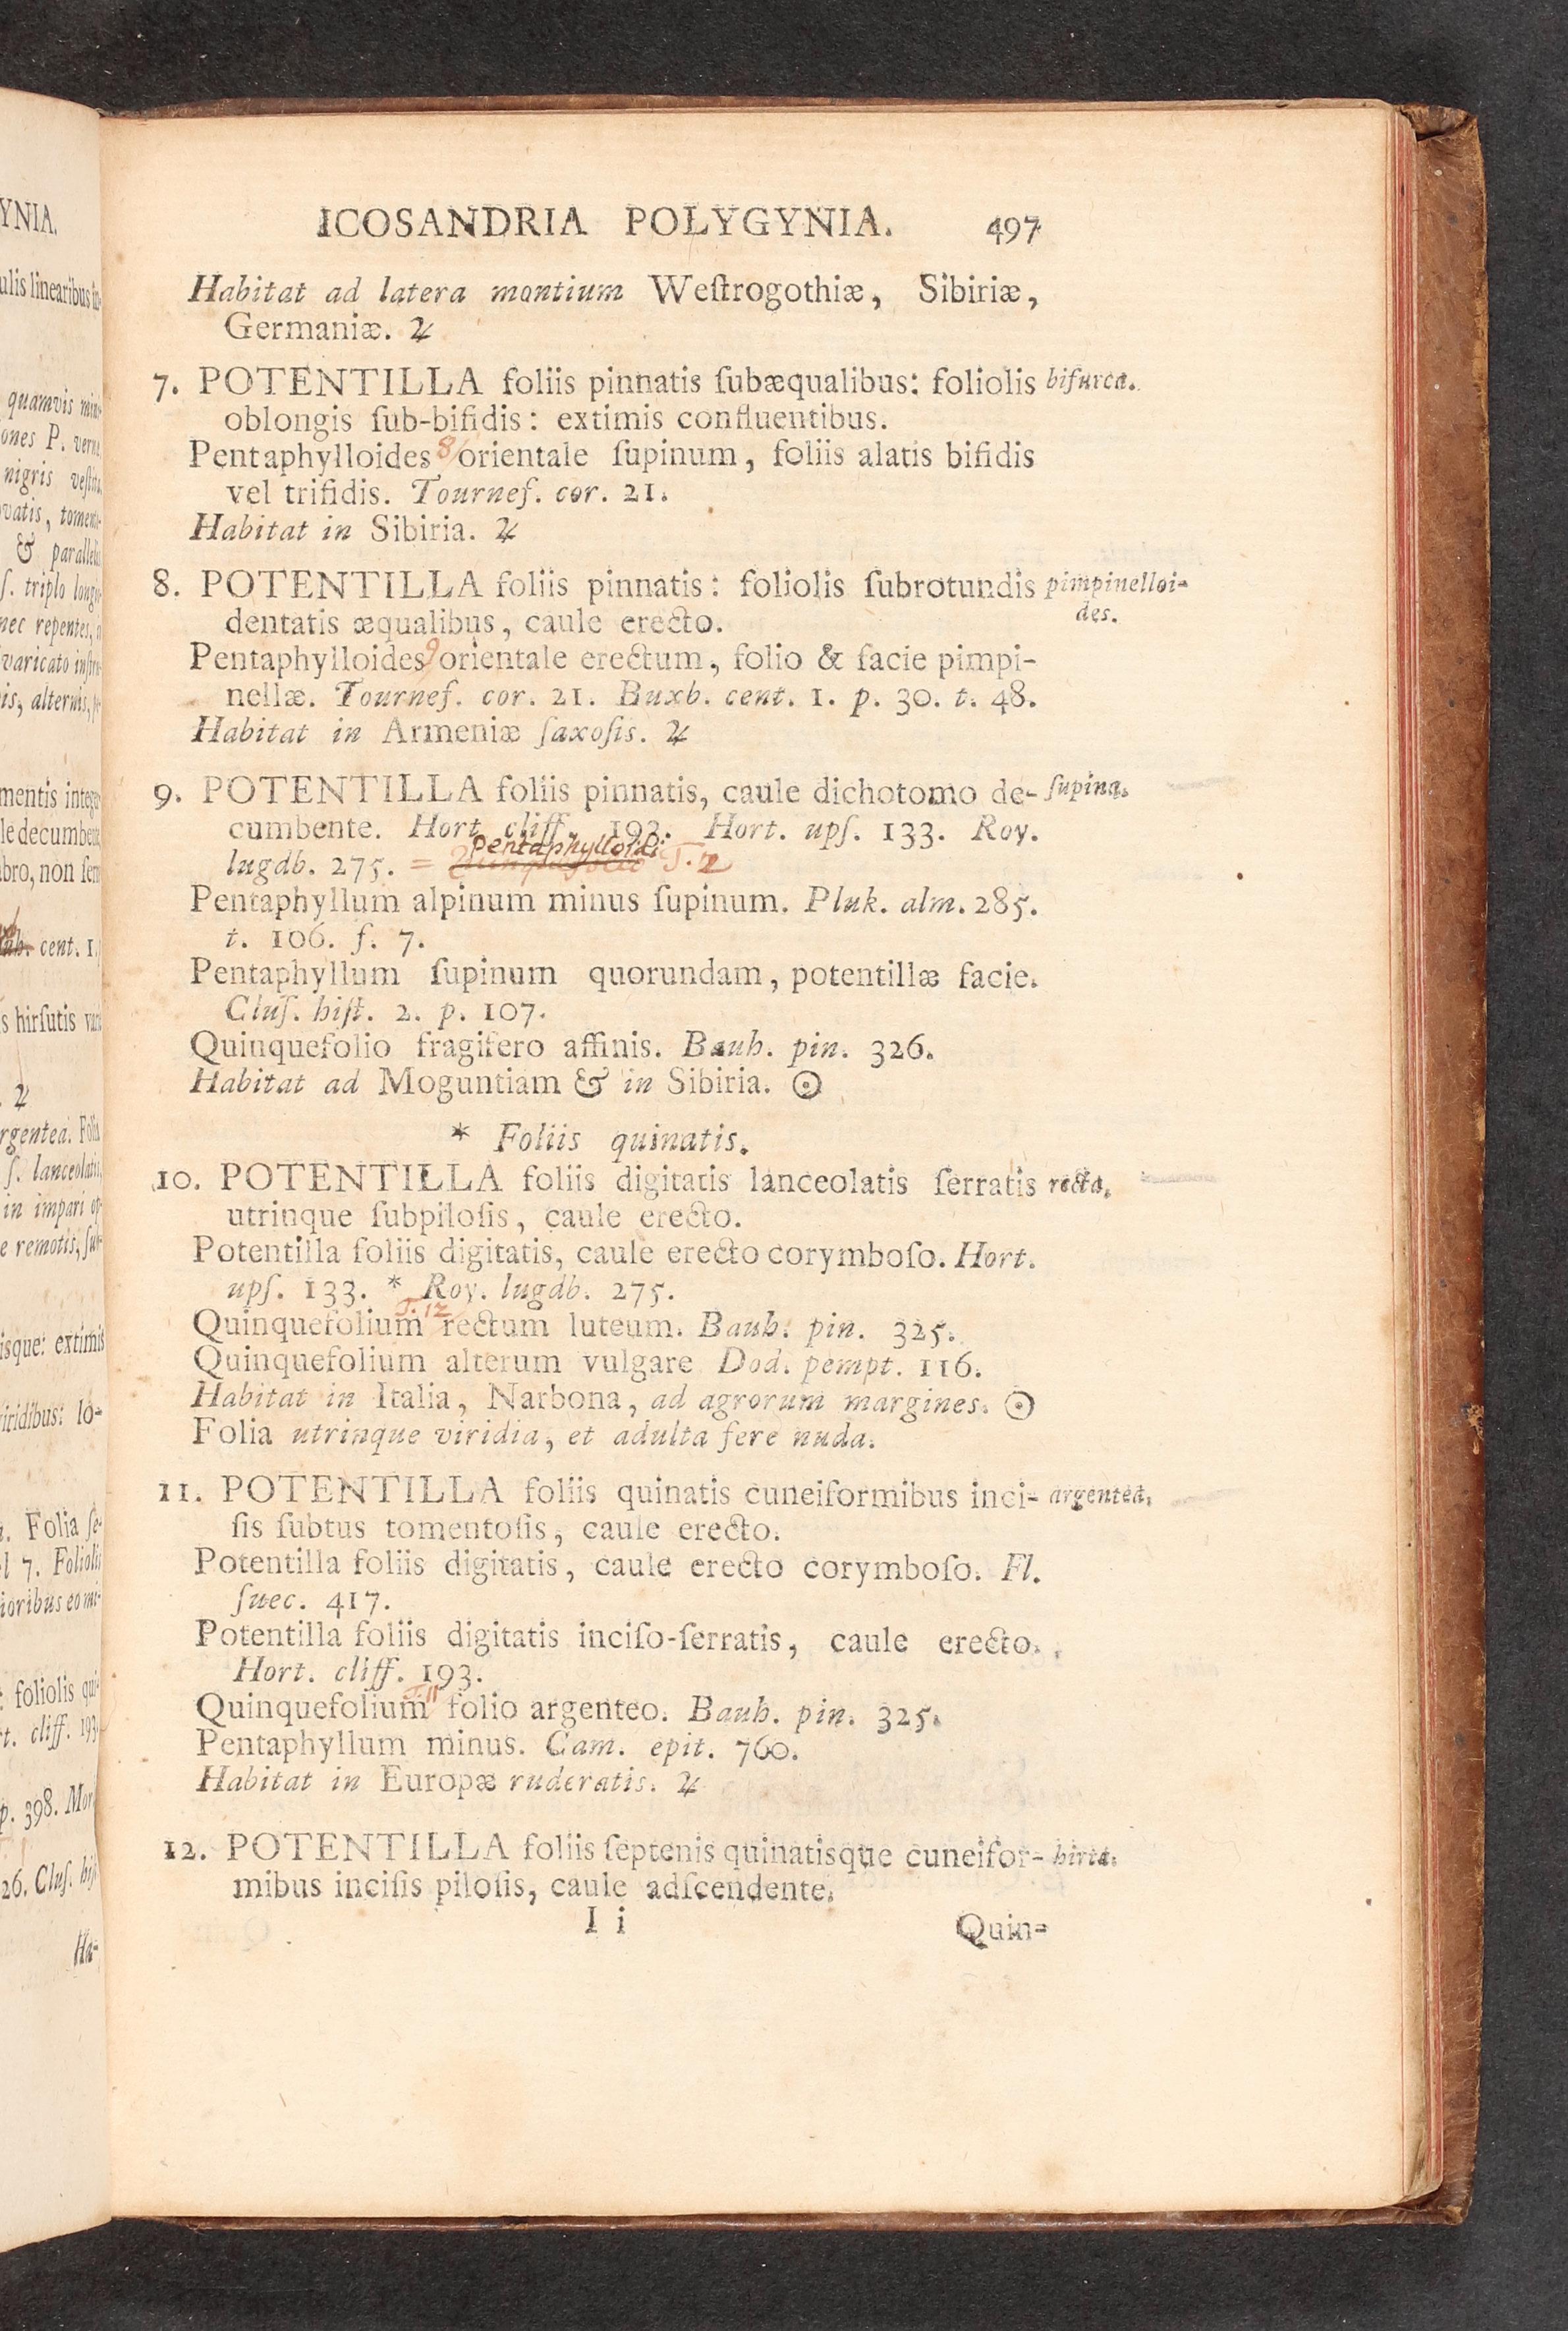 ICOSANDRIA POLYGYNIA. 497
Habitat ad latera montium Weſtrogothiæ, Sibiriæ,
Germaniæ. ♃
7. POTENTILLA foliis pinnatis ſubæqualibus: foliolis bifurca.
oblongis ſub-bifidis: extimis confluentibus.
Pentaphylloides 8/ orientale ſupinum, foliis alatis bifidis
vel trifidis. Tournef. cor. 21.
Habitat in Sibiria. ♃
8. POTENTILLA foliis pinnatis: foliolis ſubrotundis pimpinelloi-
des.
dentatis æqualibus, caule erecto.
Pentaphylloides 9 orientale erectum, folio & facie pimpi-
nellæ. Tournef. cor. 21. Buxb. cent. 1. p. 30. t. 48.
Habitat in Armeniæ ſaxoſis. ♃
9. POTENTILLA foliis pinnatis, caule dichotomo de- ſupina.
cumbente. Hort. cliff. 193. Hort. upſ. 133. Roy.
pentaphylloidi
lugdb. 275. = T. 2
Pentaphyllum alpinum minus ſupinum. Pluk. alm. 285.
t. 106. f. 7.
Pentaphyllum ſupinum quorundam, potentillæ facie.
Cluſ. hiſt. 2. p. 107.
Quinquefolio fragifero affinis. Bauh. pin. 326.
Habitat ad Moguntiam & in Sibiria. ☉
* Foliis quinatis.
10. POTENTILLA foliis digitatis lanceolatis ſerratis recta.
utrinque ſubpiloſis, caule erecto.
Potentilla foliis digitatis, caule erecto corymboſo. Hort.
upſ. 133. * Roy. lugdb. 275.
T. 12
Quinquefolium rectum luteum. Bauh. pin. 325.
Quinquefolium alterum vulgare Dod. pempt. 116.
Habitat in Italia, Narbona, ad agrorum margines. ☉
Folia utrinque viridia, et adulta fere nuda.
11. POTENTILLA foliis quinatis cuneiformibus inci- argentea.
ſis ſubtus tomentoſis, caule erecto.
Potentilla foliis digitatis, caule erecto corymboſo. Fl.
ſuec. 417.
Potentilla foliis digitatis inciſo-ſerratis, caule erecto.
Hort. cliff. 193.
T. 11
Quinquefolium folio argenteo. Bauh. pin. 325.
Pentaphyllum minus. Cam. epit. 760.
Habitat in Europæ ruderatis. ♃
12. POTENTILLA foliis ſeptenis quinatisque cuneifor- hirta.
mibus inciſis piloſis, caule adſcendente.
I i Quin-